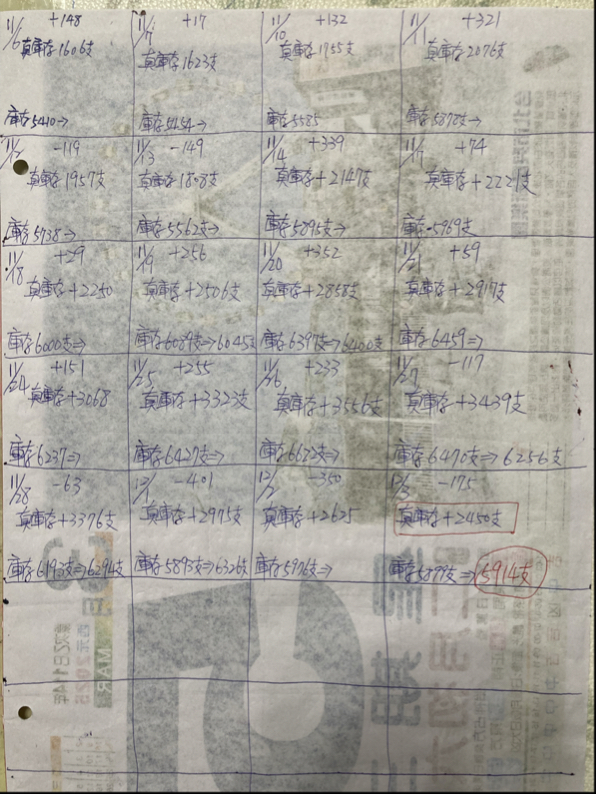 11/6 +148
真庫存1606支
庫存5410→
11/7 +17
真庫存1623支
庫存5454→
11/10 +132
真庫存1755支
庫存5585
11/11 +321
真庫存2076支
庫存5878支→
11/12 -119
真庫存1957支
庫存5738→
11/13 -149
真庫存1808支
庫存5562支→
11/14 +339
真庫存+2147支
庫存5895支→
11/17 +74
真庫存+2221支
庫存5969支
11/18 +29
真庫存+2250
庫存6000支→
11/19 +256
真庫存+2506支
庫存6039支→6045支
11/20 +352
真庫存+2858支
庫存6397支→6400支
11/21 +59
真庫存+2917支
庫存6459→
11/24 +151
真庫存+3068
庫存6237→
11/25 +255
真庫存+3323支
庫存6427支→
11/26 +233
真庫存+3556支
庫存6672支→
11/27 -117
真庫存+3439支
庫存6470支→6256支
11/28 -63
真庫存+3376支
庫存6193支→6294支
12/1 -401
真庫存+2975支
庫存5893支→6326支
12/2 -350
真庫存+2625
庫存5976支→
12/3 -175
真庫存+2450支
庫存5899支→5914支